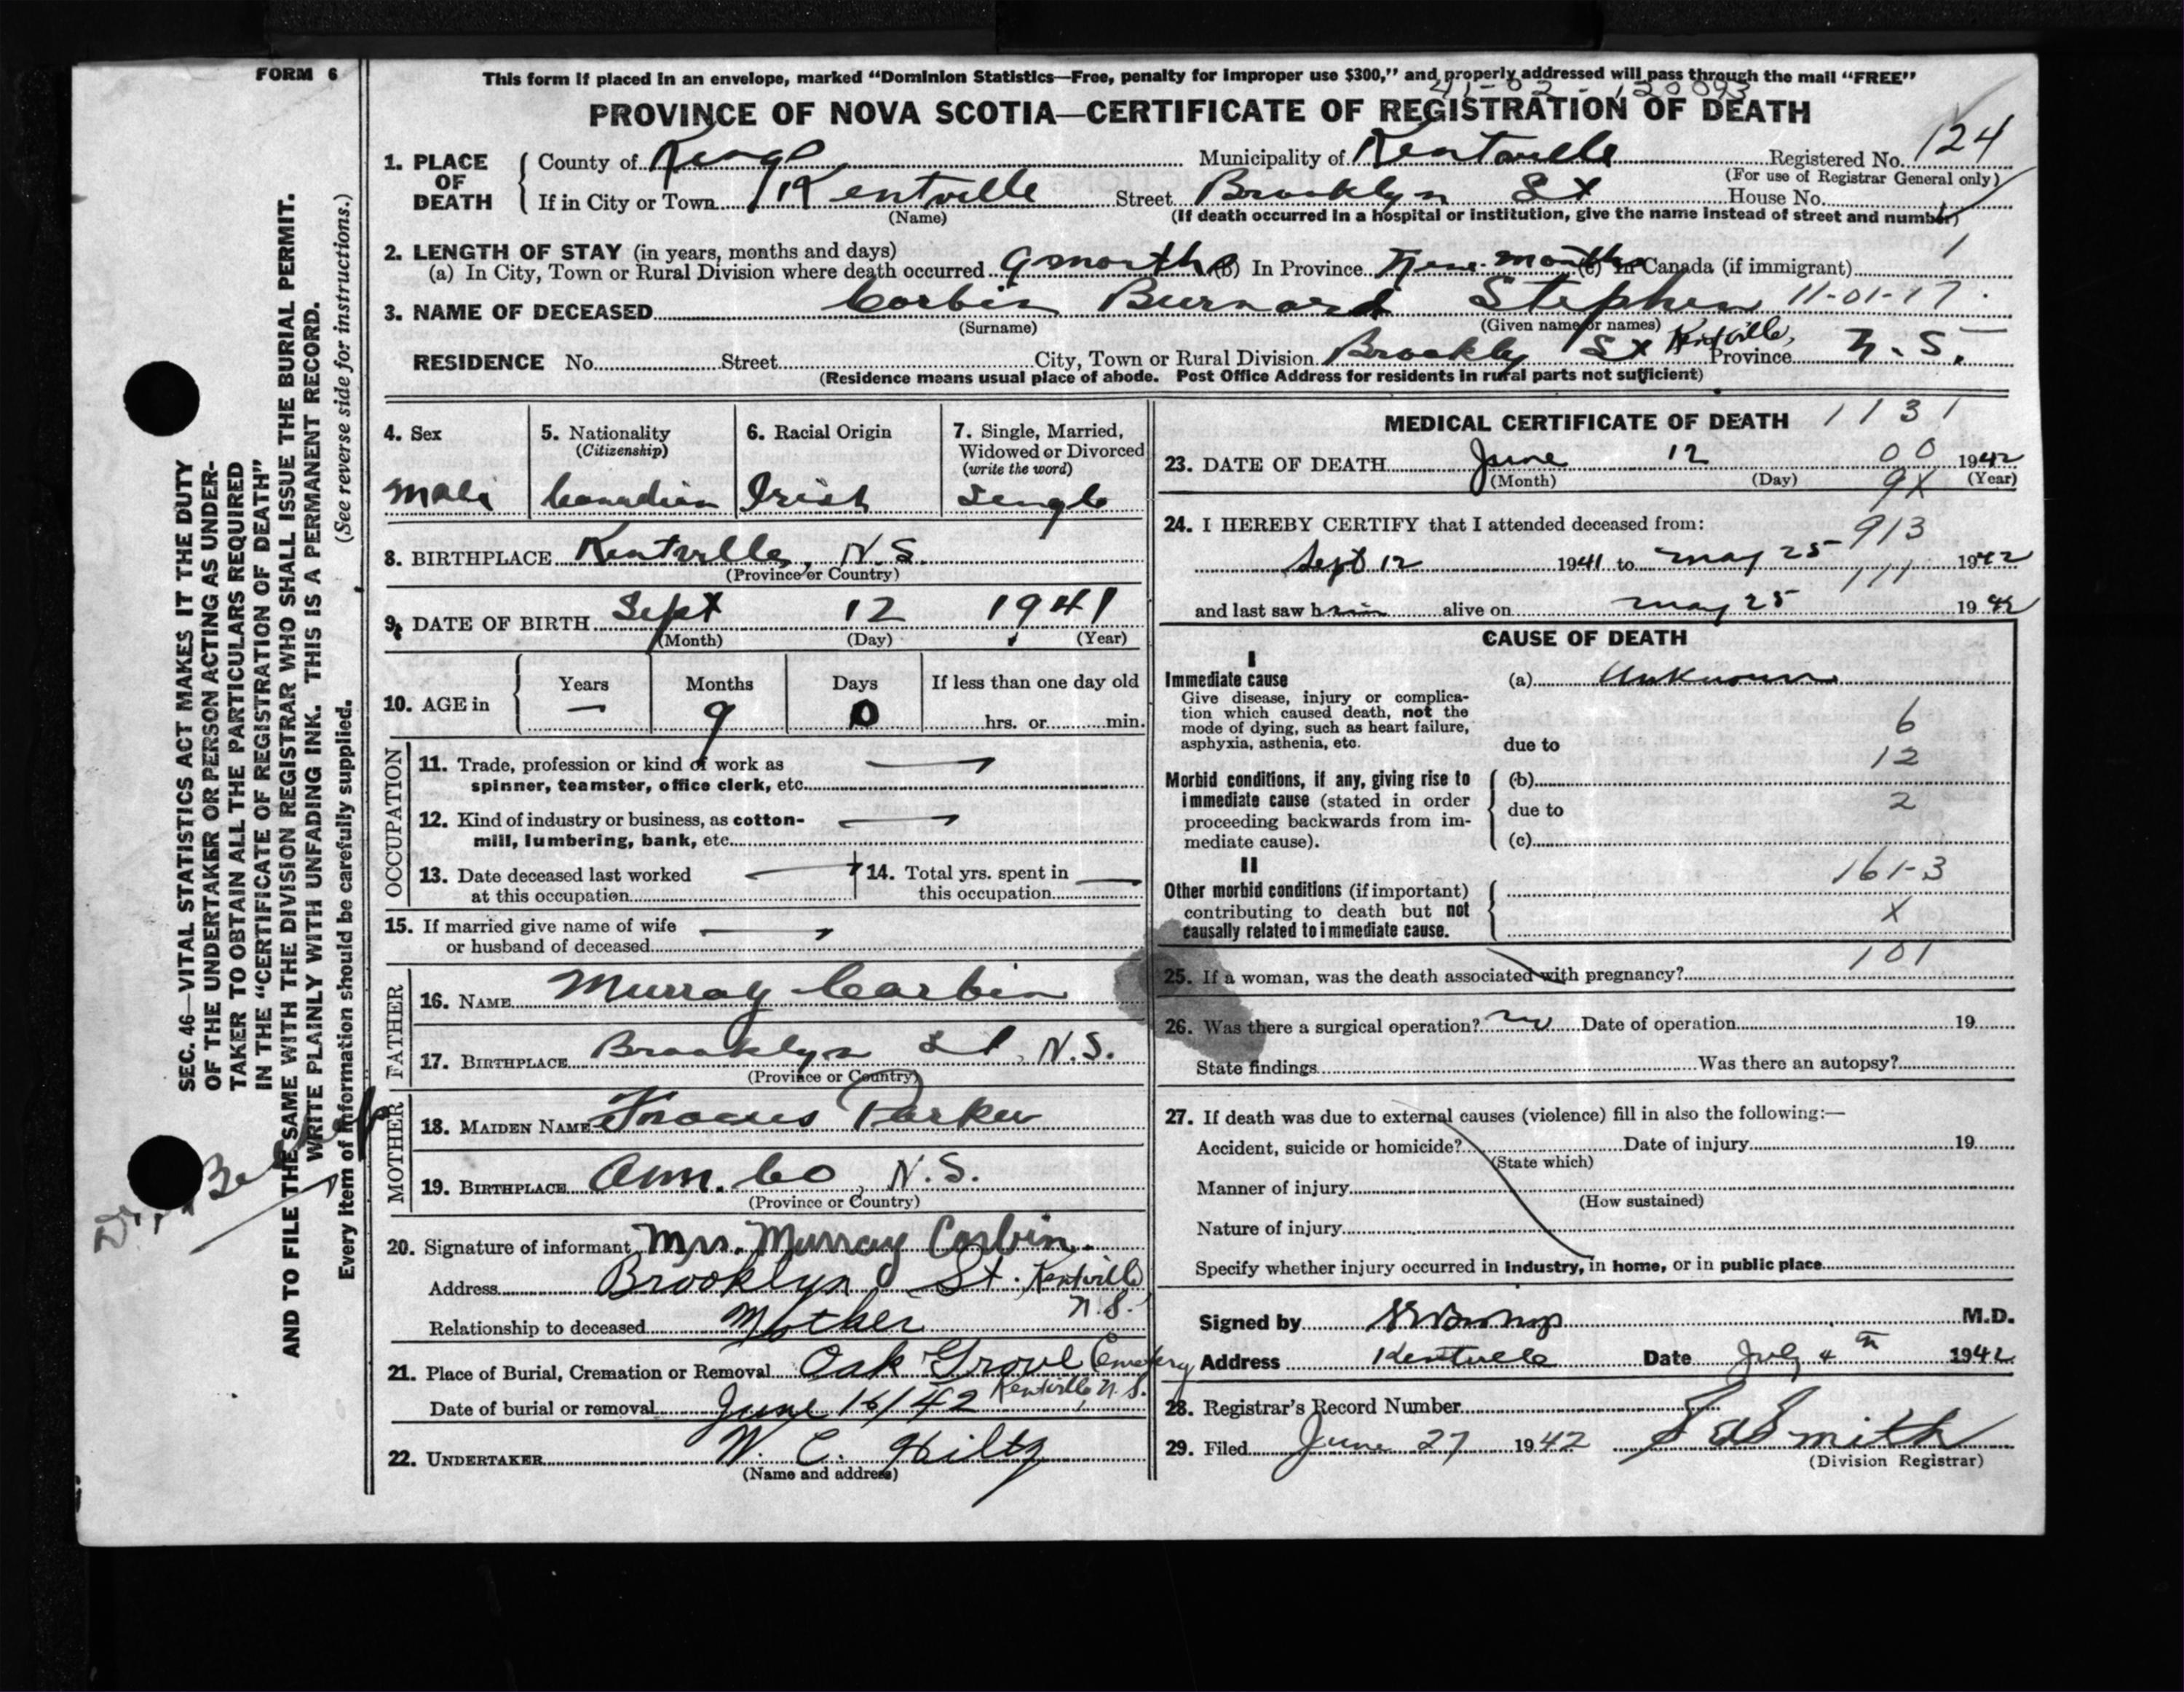 FORM 6
This form if placed in an envelope, marked “Dominion Statistics—Free, penalty for improper use $300,” and properly addressed will pass through the mail “FREE”
PROVINCE OF NOVA SCOTIA—CERTIFICATE OF REGISTRATION OF DEATH
1. PLACE OF DEATH County of Kings Municipality of Kentville Registered No. 124
(For use of Registrar General only)
If in City or Town Kentville Street Brooklyn St House No.
(Name) (If death occurred in a hospital or institution, give the name instead of street and number)
2. LENGTH OF STAY (in years, months and days) 1
(a) In City, Town or Rural Division where death occurred 9 months (b) In Province Nine months (c) In Canada (if immigrant)
3. NAME OF DECEASED Corbin Burnard Stephen 11-01-17
(Surname) (Given name or names)
RESIDENCE No. Street City, Town or Rural Division Brookly St Kentville, Province N.S.
(Residence means usual place of abode. Post Office Address for residents in rural parts not sufficient)
4. Sex 5. Nationality (Citizenship) 6. Racial Origin 7. Single, Married, Widowed or Divorced (write the word)
Male Canadian Irish Single
8. BIRTHPLACE Kentville, N.S.
(Province or Country)
9. DATE OF BIRTH Sept 12 1941
(Month) (Day) (Year)
10. AGE in Years Months Days If less than one day old
— 9 0 hrs. or min.
OCCUPATION
11. Trade, profession or kind of work as
spinner, teamster, office clerk, etc.
12. Kind of industry or business, as cotton-
mill, lumbering, bank, etc.
13. Date deceased last worked at this occupation 14. Total yrs. spent in this occupation
15. If married give name of wife
or husband of deceased
FATHER
16. NAME Murray Corbin
17. BIRTHPLACE Brooklyn St, N.S.
(Province or Country)
MOTHER
18. MAIDEN NAME Frances Parker
19. BIRTHPLACE Ann. Co, N.S.
(Province or Country)
20. Signature of informant Mrs. Murray Corbin.
Address Brooklyn St. Kentville
N.S.
Relationship to deceased Mother
21. Place of Burial, Cremation or Removal Oak Grove Cemetery
Kentville, N.S.
Date of burial or removal June 16/42
22. UNDERTAKER W. C. Hiltz
(Name and address)
MEDICAL CERTIFICATE OF DEATH 1131
23. DATE OF DEATH June 12 00 1942
(Month) (Day) 9X (Year)
24. I HEREBY CERTIFY that I attended deceased from: 913
Sept 12 1941 to May 25 1942
111
and last saw him alive on May 25 1942
CAUSE OF DEATH
I
Immediate cause (a) Unknown
Give disease, injury or complica-
tion which caused death, not the
mode of dying, such as heart failure,
asphyxia, asthenia, etc.
6
due to
12
Morbid conditions, if any, giving rise to
immediate cause (stated in order
proceeding backwards from im-
mediate cause).
(b)
due to 2
(c)
II
161-3
Other morbid conditions (if important)
contributing to death but not
causally related to immediate cause.
X
101
25. If a woman, was the death associated with pregnancy?
26. Was there a surgical operation? no Date of operation 19
State findings Was there an autopsy?
27. If death was due to external causes (violence) fill in also the following:—
Accident, suicide or homicide? Date of injury 19
(State which)
Manner of injury
(How sustained)
Nature of injury
Specify whether injury occurred in industry, in home, or in public place
Signed by M.D.
Address Kentville Date July 4th 1942
28. Registrar's Record Number
29. Filed June 27 1942 Smith
(Division Registrar)
SEC. 46—VITAL STATISTICS ACT MAKES IT THE DUTY
OF THE UNDERTAKER OR PERSON ACTING AS UNDER-
TAKER TO OBTAIN ALL THE PARTICULARS REQUIRED
IN THE “CERTIFICATE OF REGISTRATION OF DEATH”
AND TO FILE THE SAME WITH THE DIVISION REGISTRAR WHO SHALL ISSUE THE BURIAL PERMIT.
WRITE PLAINLY WITH UNFADING INK. THIS IS A PERMANENT RECORD.
(See reverse side for instructions.)
Every item of information should be carefully supplied.